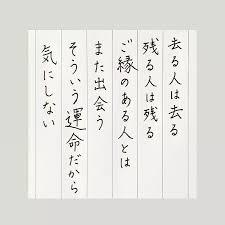 去る人は去る
残る人は残る
ご縁のある人とは
また出会う
そういう運命だから
気にしない